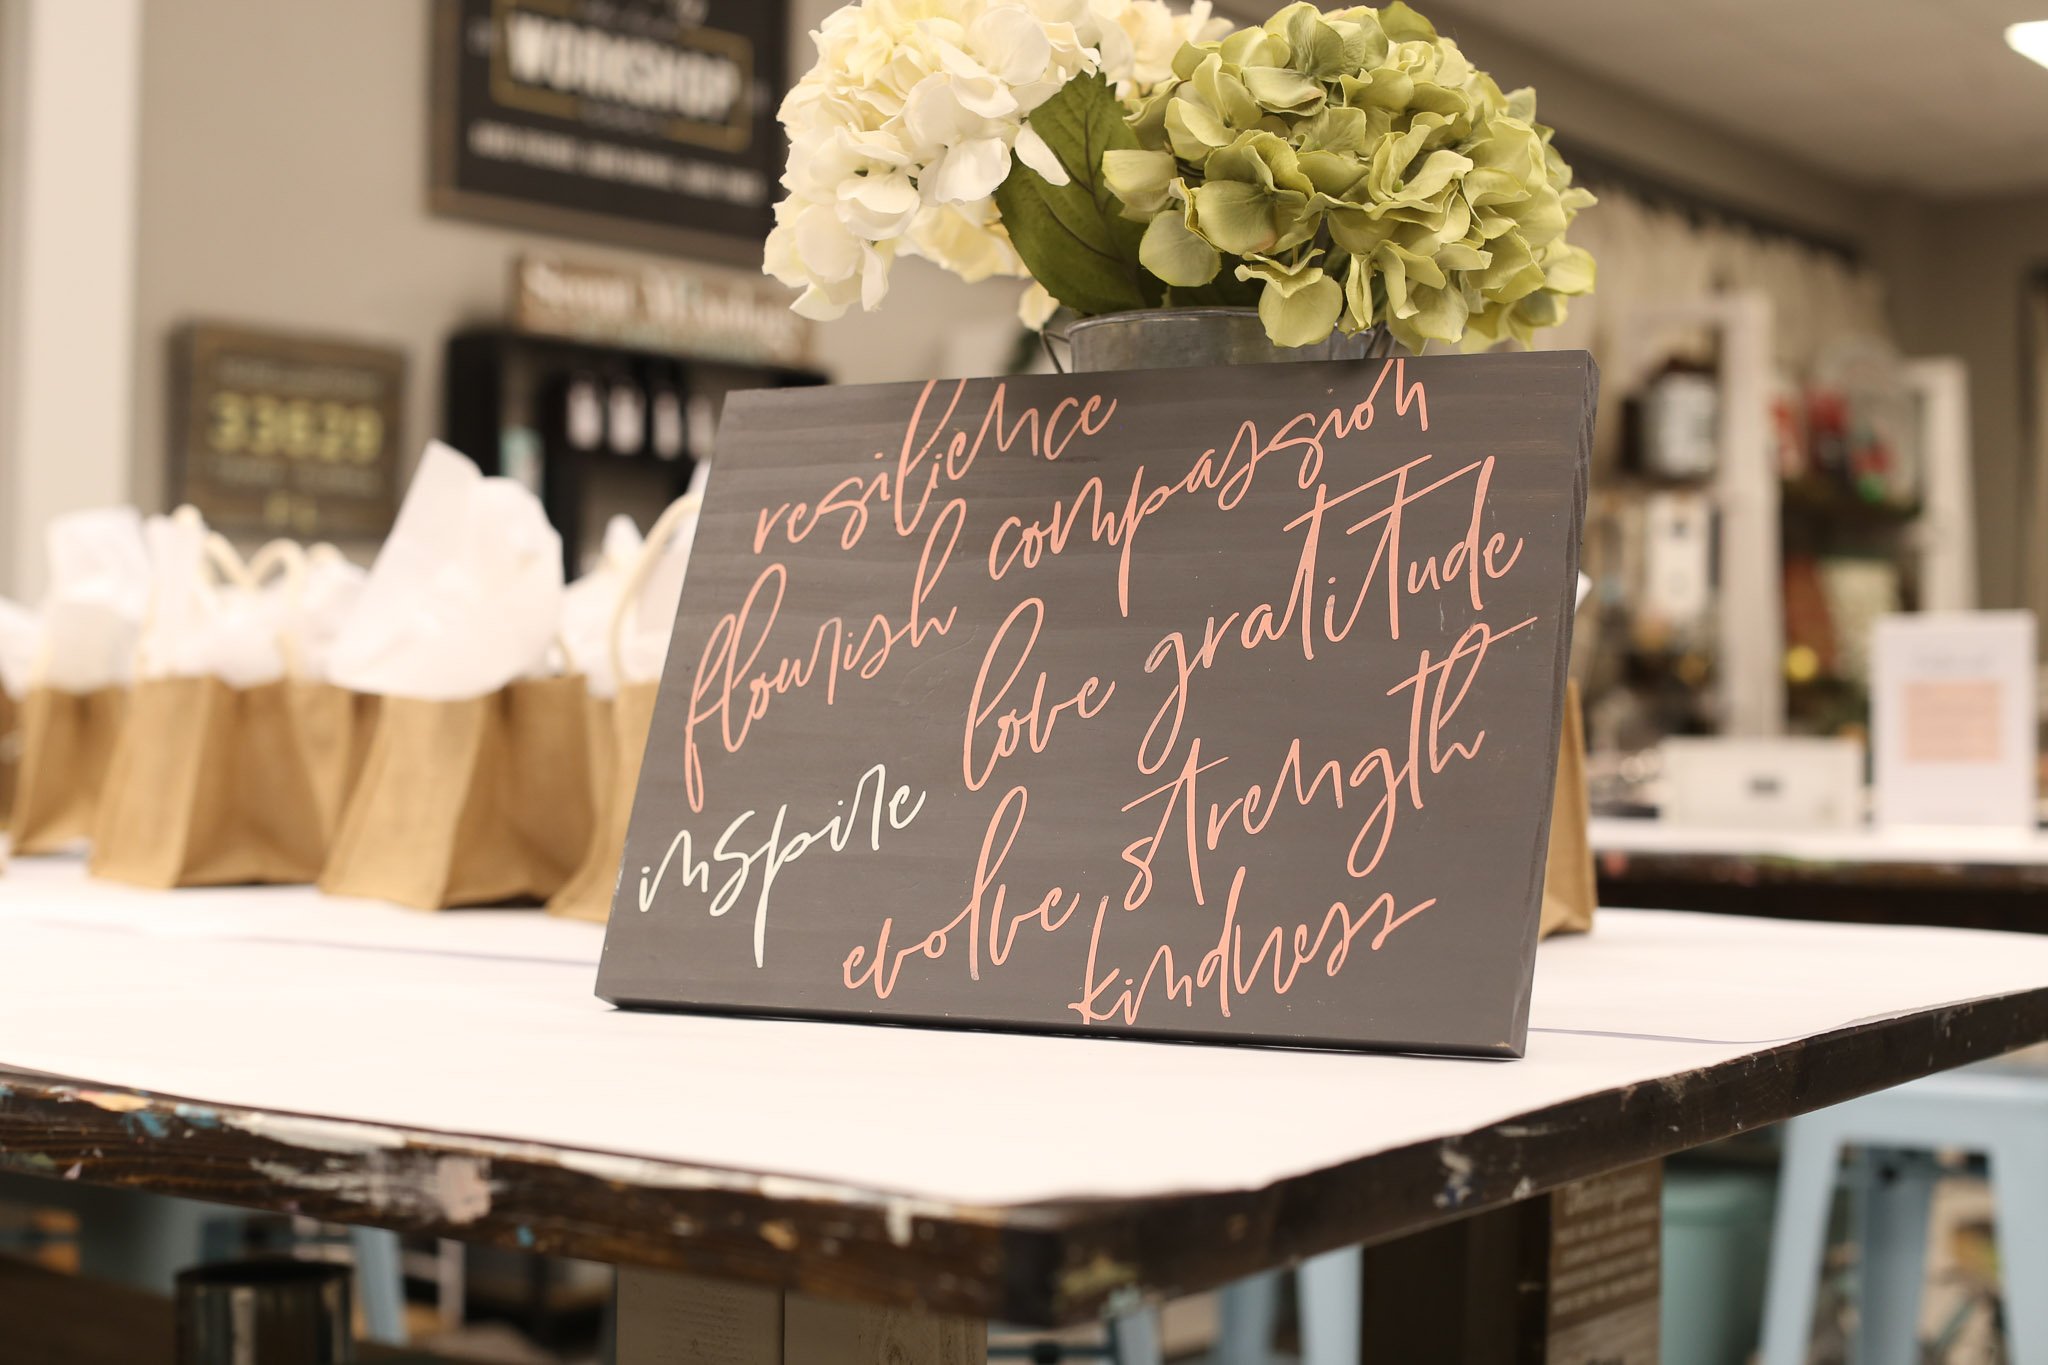 WORKSHOP
33629
resilience
flourish compassion
inspire love gratitude
evolve strength
kindness